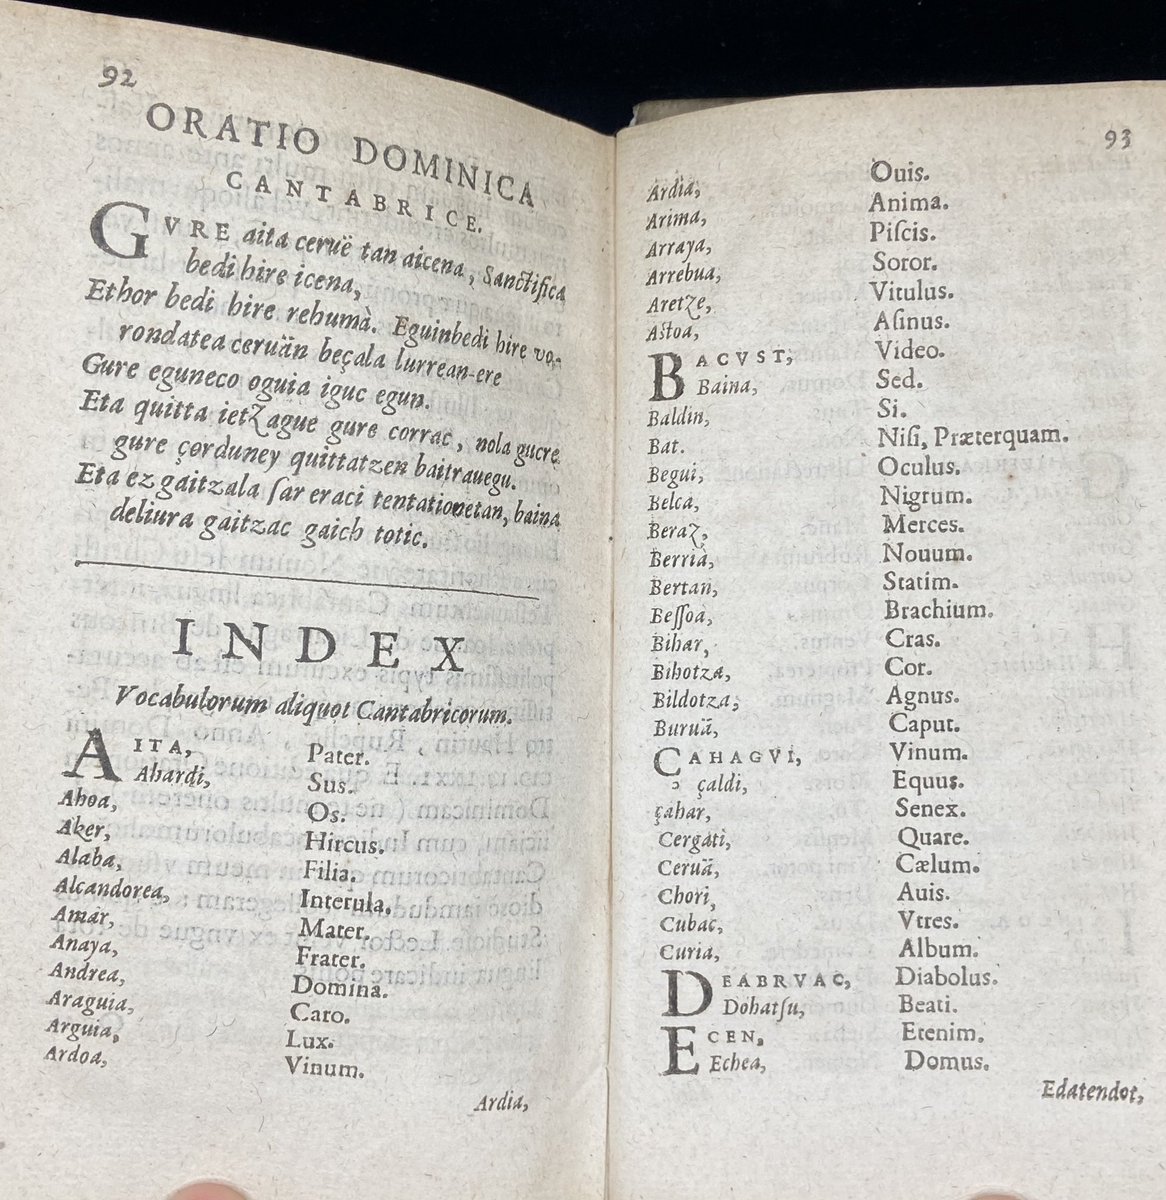 92
ORATIO DOMINICA
CANTABRICE.
GVRE aita ceruë tan aicena, Sanctifica
bedi hire icena,
Ethor bedi hire rehumà. Eguinbedi hire vo-
rondatea ceruän beçala lurrean-ere
Gure eguneco oguia iguc egun.
Eta quitta ietzague gure çorrac, nola gucre
gure çorduney quittatzen baitrauegu.
Eta ez gaitzala sar eraci tentationetan, baina
deliura gaitzac gaich totic.
INDEX
Vocabulorum aliquot Cantabricorum.
AITA, Pater.
Ahardi, Sus.
Ahoa, Os.
Aker, Hircus.
Alaba, Filia.
Alcandorea, Interula.
Amar, Mater.
Anaya, Frater.
Andrea, Domina.
Araguia, Caro.
Arguia, Lux.
Ardoa, Vinum.
Ardia,
93
Ardia, Ouis.
Arima, Anima.
Arraya, Piscis.
Arrebua, Soror.
Aretze, Vitulus.
Astoa, Asinus.
BACVST, Video.
Baina, Sed.
Baldin, Si.
Bat. Nisi, Præterquam.
Begui, Oculus.
Belca, Nigrum.
Beraz, Merces.
Berrià, Nouum.
Bertan, Statim.
Bessoà, Brachium.
Bihar, Cras.
Bihotza, Cor.
Bildotza, Agnus.
Buruä, Caput.
CAHAGVI, Vinum.
çaldi, Equus.
çahar, Senex.
Cergati, Quare.
Ceruä, Cælum.
Chori, Auis.
Cubac, Vtres.
Curia, Album.
DEABRVAC, Diabolus.
Dohatsu, Beati.
ECEN, Etenim.
Echea, Domus.
Edatendot,